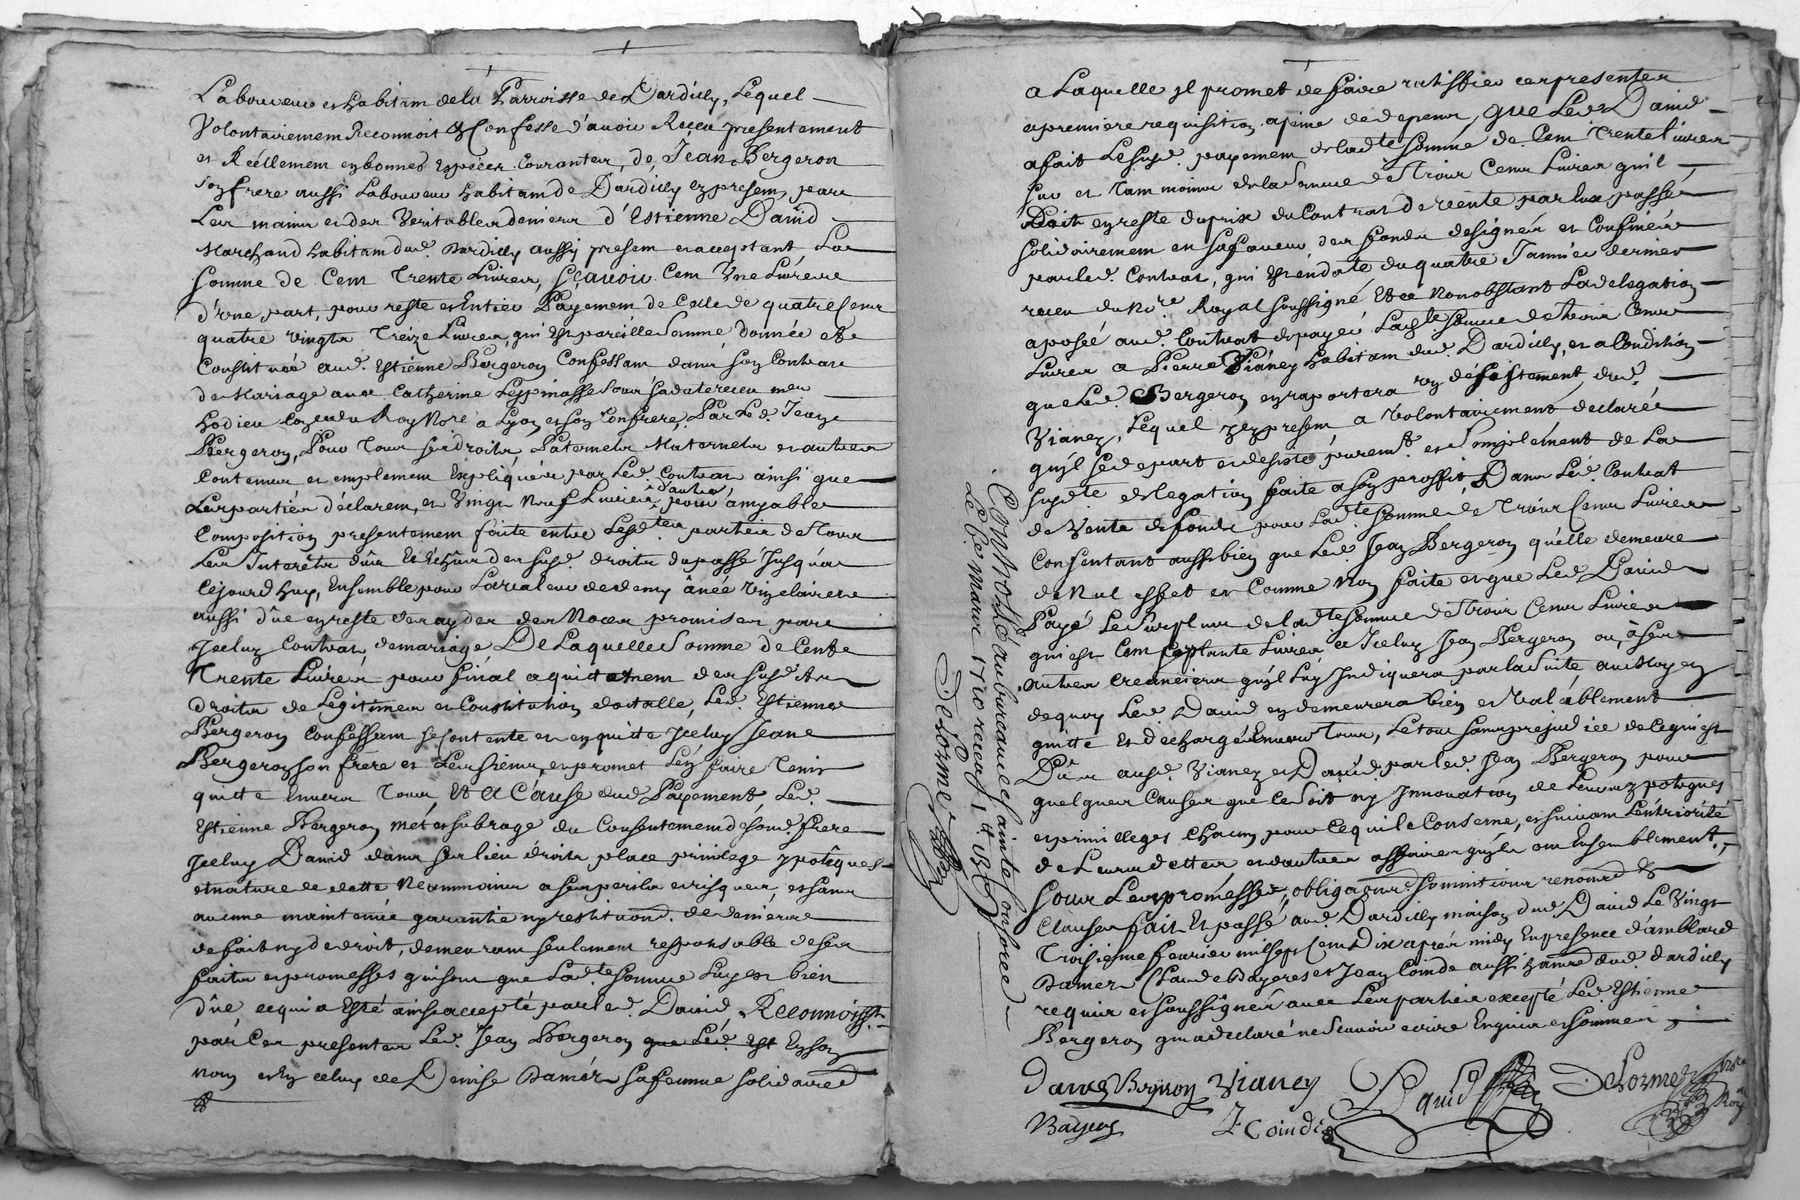 Laboureur et habitam de la Parroisse de Dardilly, Lequel
Volontairemem Reconnoit & Confesse d'avoir Receu presentement
et Réellemem en bonnes Espéces Courantes, de Jean Bergeron
son frere aussi Laboureur habitam de Dardilly cy presem, par
Les mains et des Veritables deniers d'Estienne David
Marchand habitam dud. Dardilly aussy presem et acceptant La
Somme de Cem Trente Livres, sçavoir Cem Une Livre
d'une part, pour reste et Entier Payemem de Celle de quatre Cems
quatre vingts Treize Livres, qui Est pareille Somme donnée et
Constituée aud. Estienne Bergeron Confessam dans son Contrat
de Mariage avec Catherine Lespinasse sous sa date receu me
hodieu Con.er du Roy No.re a Lyon et son Confrere, Par Led. Jean
Bergeron, Pour Tous ses droits Paternels Maternels et autres
Contenus et amplemem Expliqués par Led. Contrat ainsi que
Les parties déclarem, et Vingt Neuf Livres d'autre pour amyable
Composition presentemem faite entre Lesd. parties de Tous
Les Interêts dûs Et Echûs des susd. droits du passé Jusqu'a
Cejourd'huy, Ensemble pour La valeur de demy ânée Vin claire
aussi dûe en reste des aydes des Noces promises par
Jceluy Contrat de mariage De Laquelle Somme de Cent
Trente Livres pour finál aquittemem des susd.
droits de Légitimes et Constitution dottalle, Led. Estienne
Bergeron Confessam se Contente et en quitte Jceluy Jean
Bergeron son frére et Les siens, en promet Léz faire Tenir
quitte Envers Tous, Et A Cause dud. Payement, Led.
Estienne Bergeron, mét et subroge du Consentemem de sond. frere
Jceluy David dans ses lieu droits, place privilege ypotéques
et nature de dette Neammoins a ses perils et risques, et sans
aucune maintenüe garantie ny restitution de deniers
de fait ny de droit, demeuram seulement responsable de ses
faits et promesses qui sont que Lad.te Somme Luy est bien
dûe ce qui a Esté ainsi accepté par led. David, Reconnoisst.
par Ces presentes Led. Jean Bergeron que Led. Est En son
nom et En celuy de Denise Damér sa femme solidaire
a Laquelle jl promét de faire ratiffier ces presentes
a premiere requisition a peine de depens, que Led. David
a fait Le susd. payemem de lad.te Somme de Cem Trente livres
sur et Tam moins de la Somme de Trois Cems Livres qu'il
Doit en reste du prix du Contrat de vente par luy passé
solidairemem en sa faveur des fonds designés et Confinés
par led. Contrat, qui Est en date du quatre Janvier dernier
receu du No.re Royal soussigné Et ce Nonobstant La delegation
aposée aud. Contrat de payer Lad.te Somme de Trois Cems
Livres a Pierre Vianey habitam dud. Dardilly, et a Condition
que Led. Bergeron en raportera son défistement dud.
Vianey, Lequel jcy presem a Volontairement declaré
qu'jl se départ et desiste purem.t et simplement de La
susd.te delegation faite a son proffit Dans Led. Contrat
de Vente de fonds pour Lad.te Somme de Trois Cems Livres
Consentant aussi bien que Led. Jean Bergeron qu'elle demeure
de Nul effet et Comme Non faite et que Led. David
Payé Le surplus de lad.te Somme de Trois Cems Livres
qui est Cem Septante Livres a Jceluy Jean Bergeron ou à ses
autres Creanciers qu'jl Luy Jndiquera par la suite au moyen
de quoy Led. David en demeurera bien et Valáblement
quitte Et déchargé Envers Tous, Le tout sans prejudice de ce qui est
Dû aud. Vianey et David par led. Jean Bergeron pour
quelques Causes que ce soit ny Jnnovation de Leurs ypoteques
et privilleges Chacun pour Ce qui le Conserne, et suivam L'entériorité
de Leurs dettes et d'autres affaires qu'jls ont Ensemblement.
sous Leurs promesses, obliga.ons soumitions renon.ons &
Clauses fait Et passé aud. Dardilly maison dud. David Le Vingt
Troisiéme fevrier mil sept Cem Dix aprés midy En presence d'amblard
Damer Claude Bayeres et Jean Coinde aussi hab.ans dud. dardilly
requis et soussignés avec Les parties excepté Led. Estienne
Bergeron qui a declaré ne Scavoir ecrire Enquis et sommer
Damer Bergeron Vianey David DeLorme No.re Roy.
Bayeres J. Coindes
Controllé au bureau de Sainte Consorce
Le Ce mars 1710 receu 14 s.
DeLorme